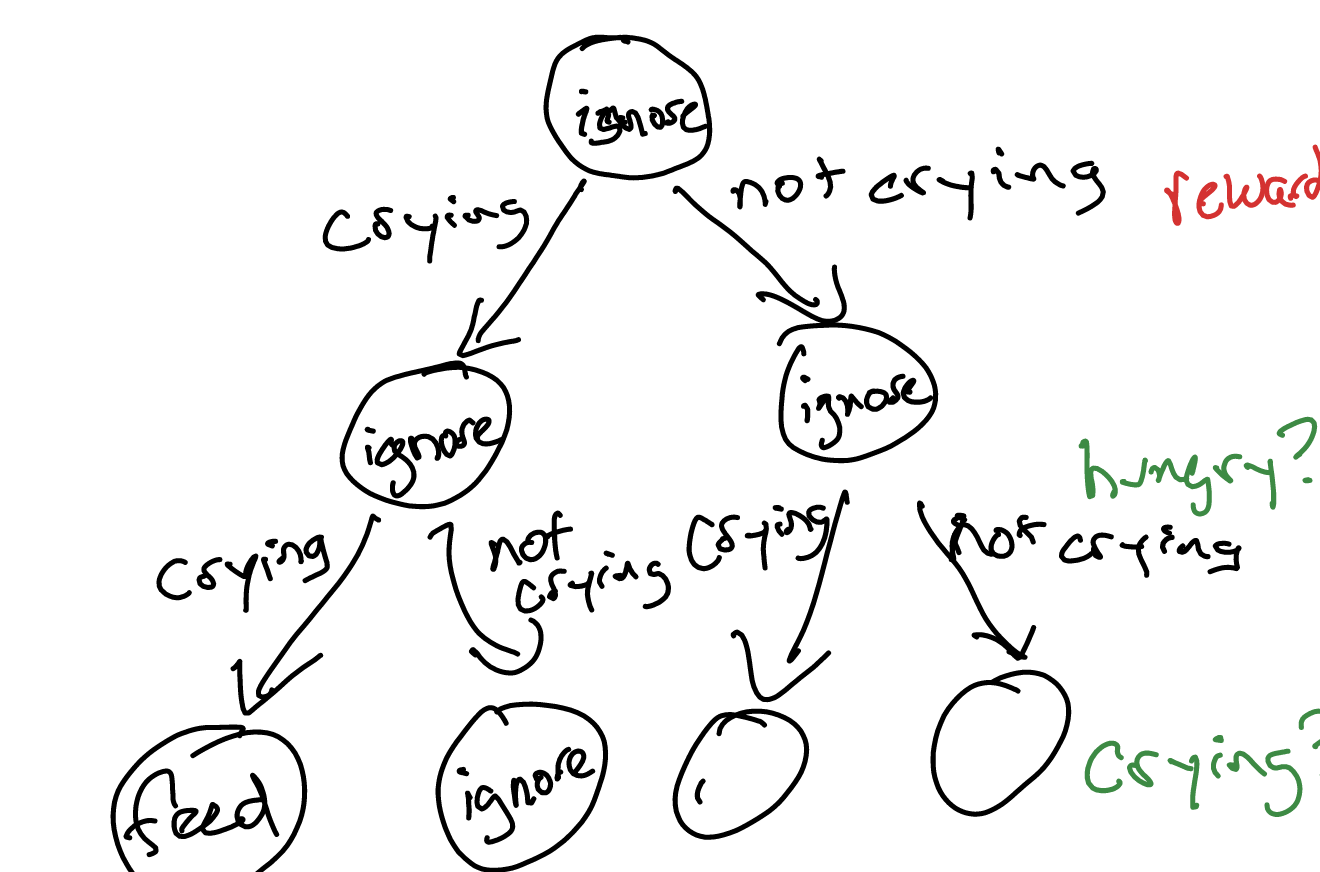 ignore
crying
not crying
reward
ignore
ignore
hungry?
crying
not
crying
crying
not crying
feed
ignore
crying?